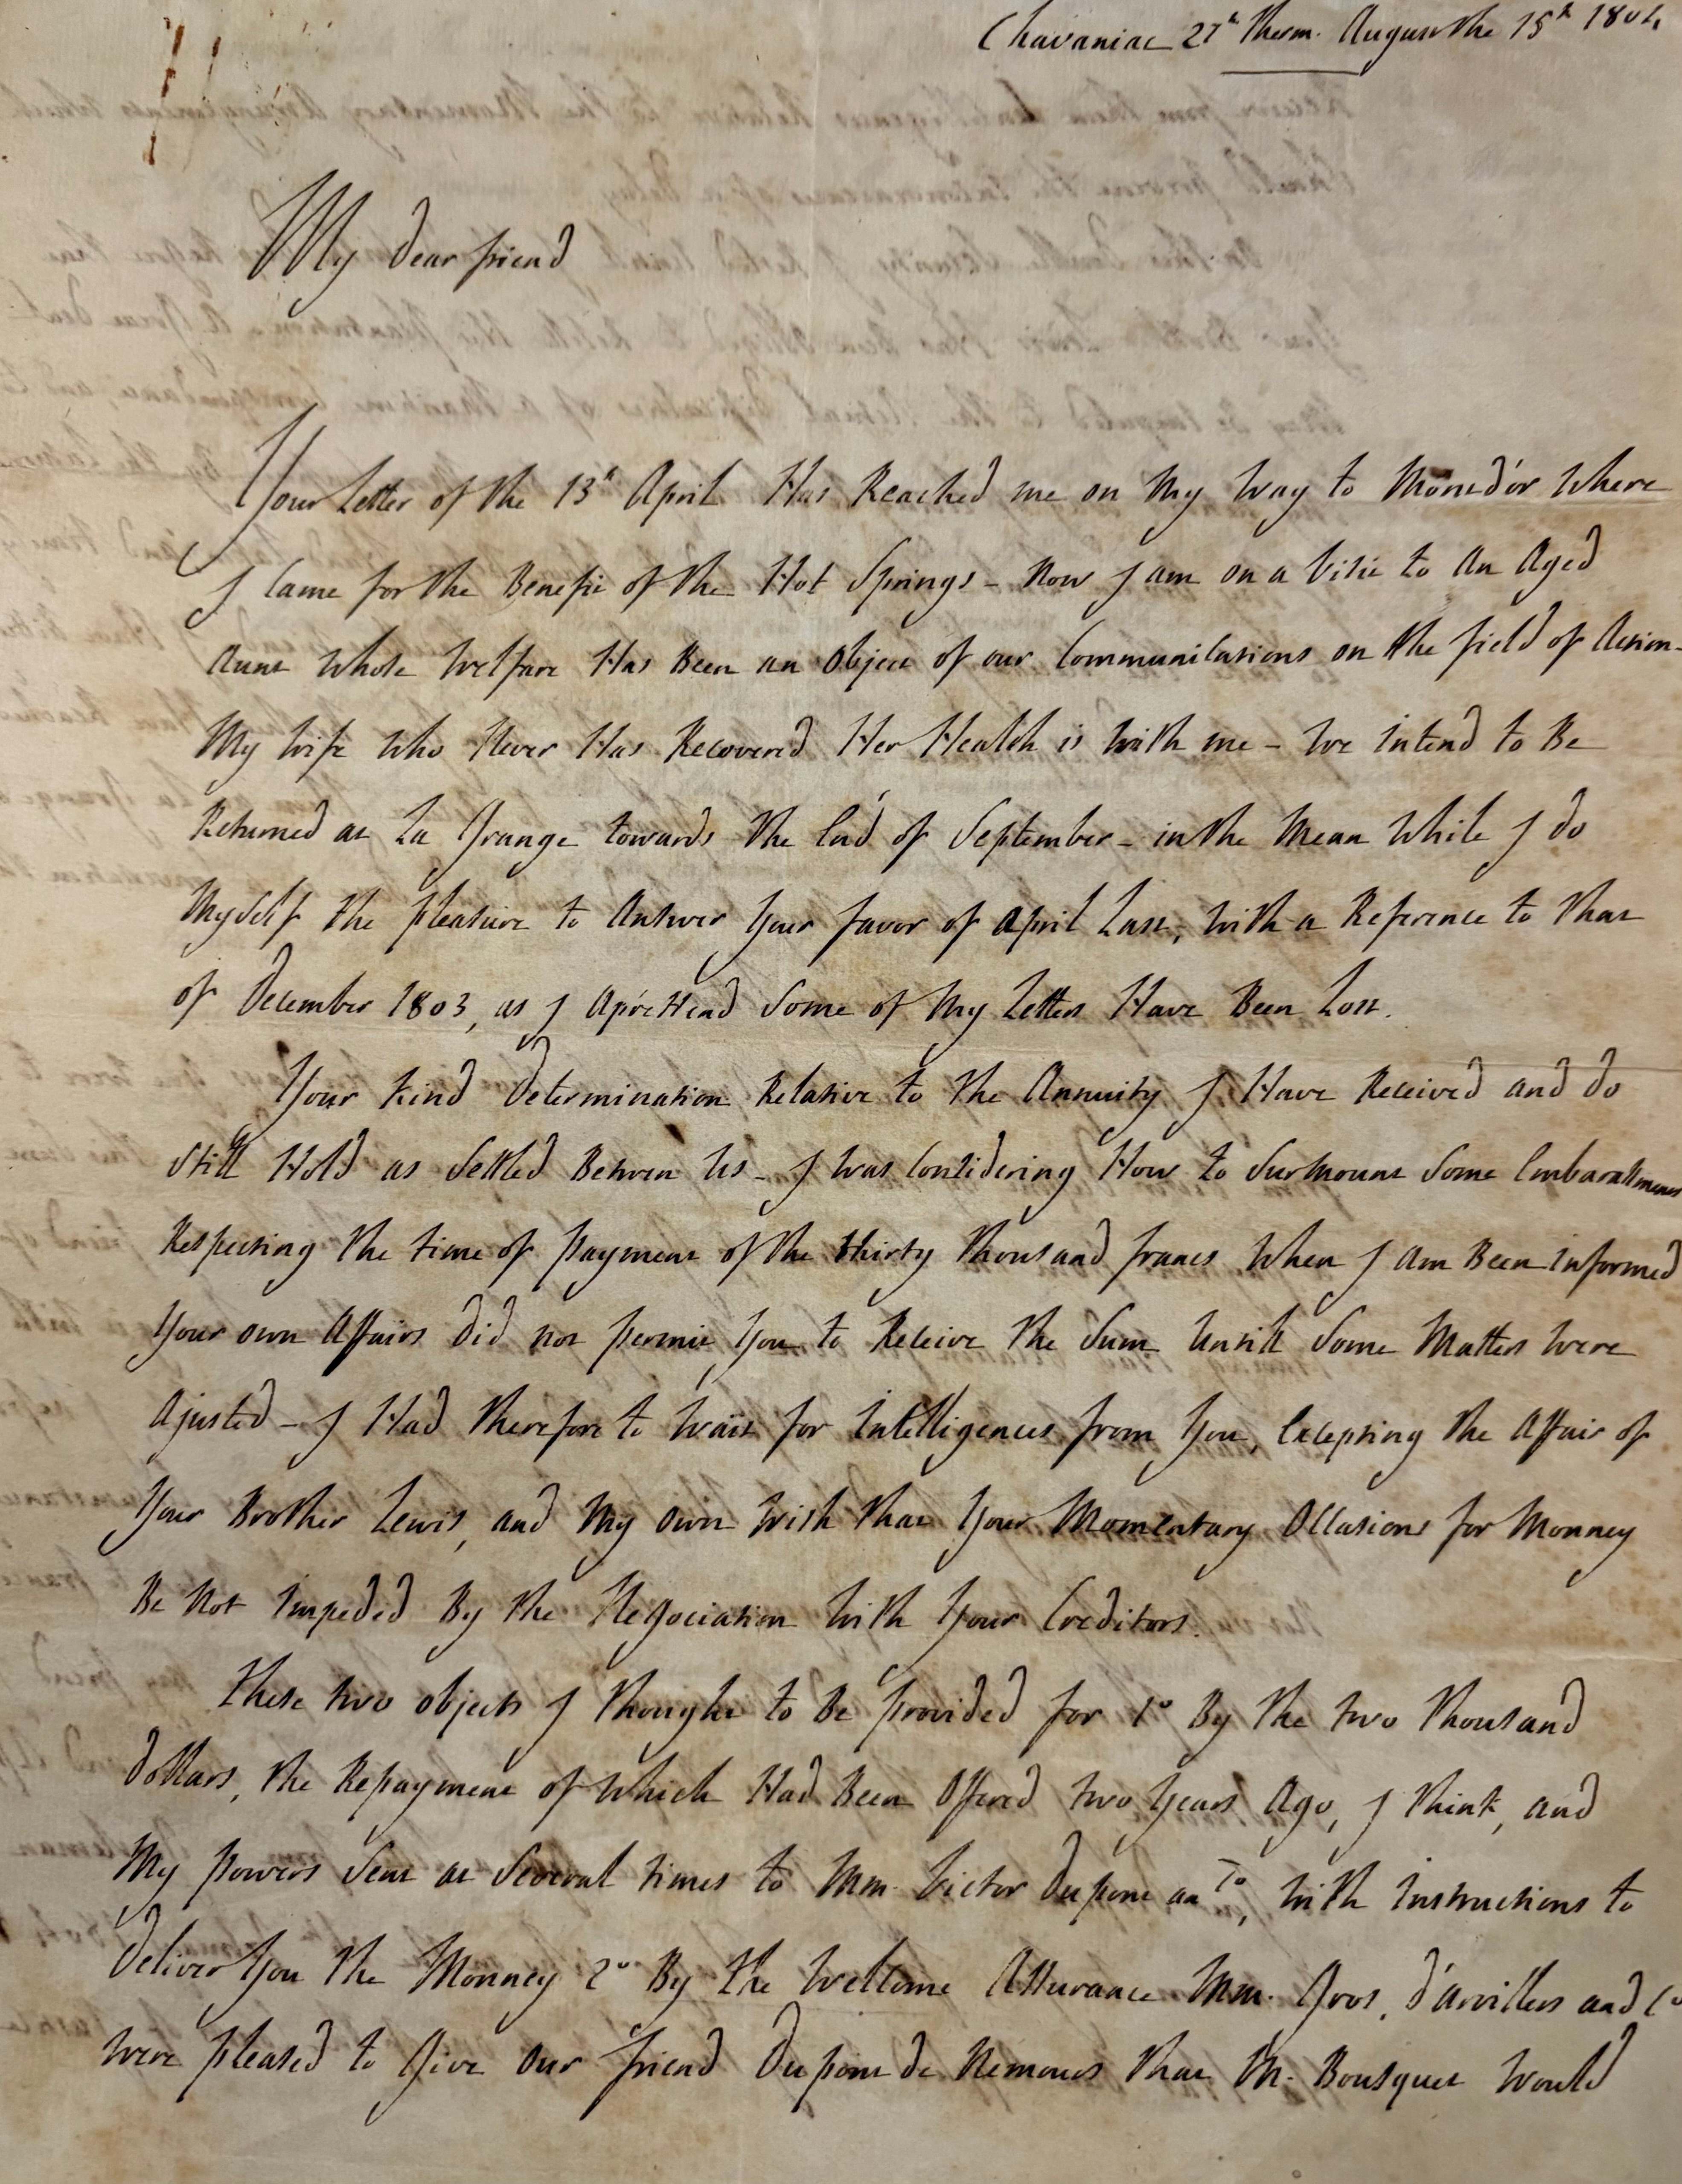 Chavaniac 27h therm. Augusthe 15h 1804
My dear friend
Your Letter of the 13h April Has Reached me on My Way to Mont d'or Where
I Came for the Benefit of the Hot Springs - Now I am on a Visit to An Aged
Aunt Whose Welfare Has Been an Object of our Communications on the field of Action -
My Wife Who Never Has Recovered Her Health is With me - We intend to Be
Returned at La Grange towards the End of September - in the Mean While I do
Myself the pleasure to Answer Your favor of April Last, With a Reference to that
of December 1803, as I ApreHend Some of My Letters Have Been Lost.
Your Kind Determination Relative to the Annuity I Have Received and do
Still Hold as Settled Between Us - I Was Considering How to Surmount Some Embarassments
Respecting the time of payment of the thirty thousand francs When I am Been informed
Your own Affairs did not permit You to Receive the Sum Untill Some Matters Were
Ajusted - I Had therefore to Wait for intelligences from You, Excepting the Affair of
Your Brother Lewis, and My own Wish that Your Momentary Occasions for Monney
Be Not impeded By the Negociation With Your Creditors.
These two objects I thought to Be provided for 1o By the two thousand
dollars, the Repayment of Which Had Been Offered two Years Ago, I think, and
My powers Sent at Several times to Mm. Victor Dupont an Co, With instructions to
deliver You the Monney 2o By the Wellcome Assurance Mm. Gros, d'arvillers and Co
Were pleased to Give our friend Dupont de Nemours that M. Bousquet Would